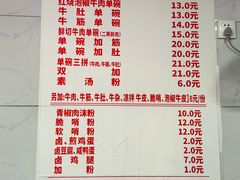 红烧泡椒牛肉单碗 13.0元
牛肚单碗 13.0元
牛筋单碗 15.0元
鲜切牛肉单碗(二两鲜肉) 21.0元
单碗加筋 20.0元
单碗加肚 20.0元
单碗三拼(牛肉、牛筋、牛肚) 21.0元
双加 21.0元
素汤粉 6.0元
另加:牛肉、牛筋、牛肚、牛杂、凉拌牛皮、脆哨、泡椒牛皮】8元/份
青椒肉沫粉 10.0元
脆哨粉 12.0元
软哨粉 12.0元
卤、煎鸡蛋 2.0元
卤豆腐、咸鸭蛋 2.0元
卤鸡腿 7.0元
加粉 1.0元